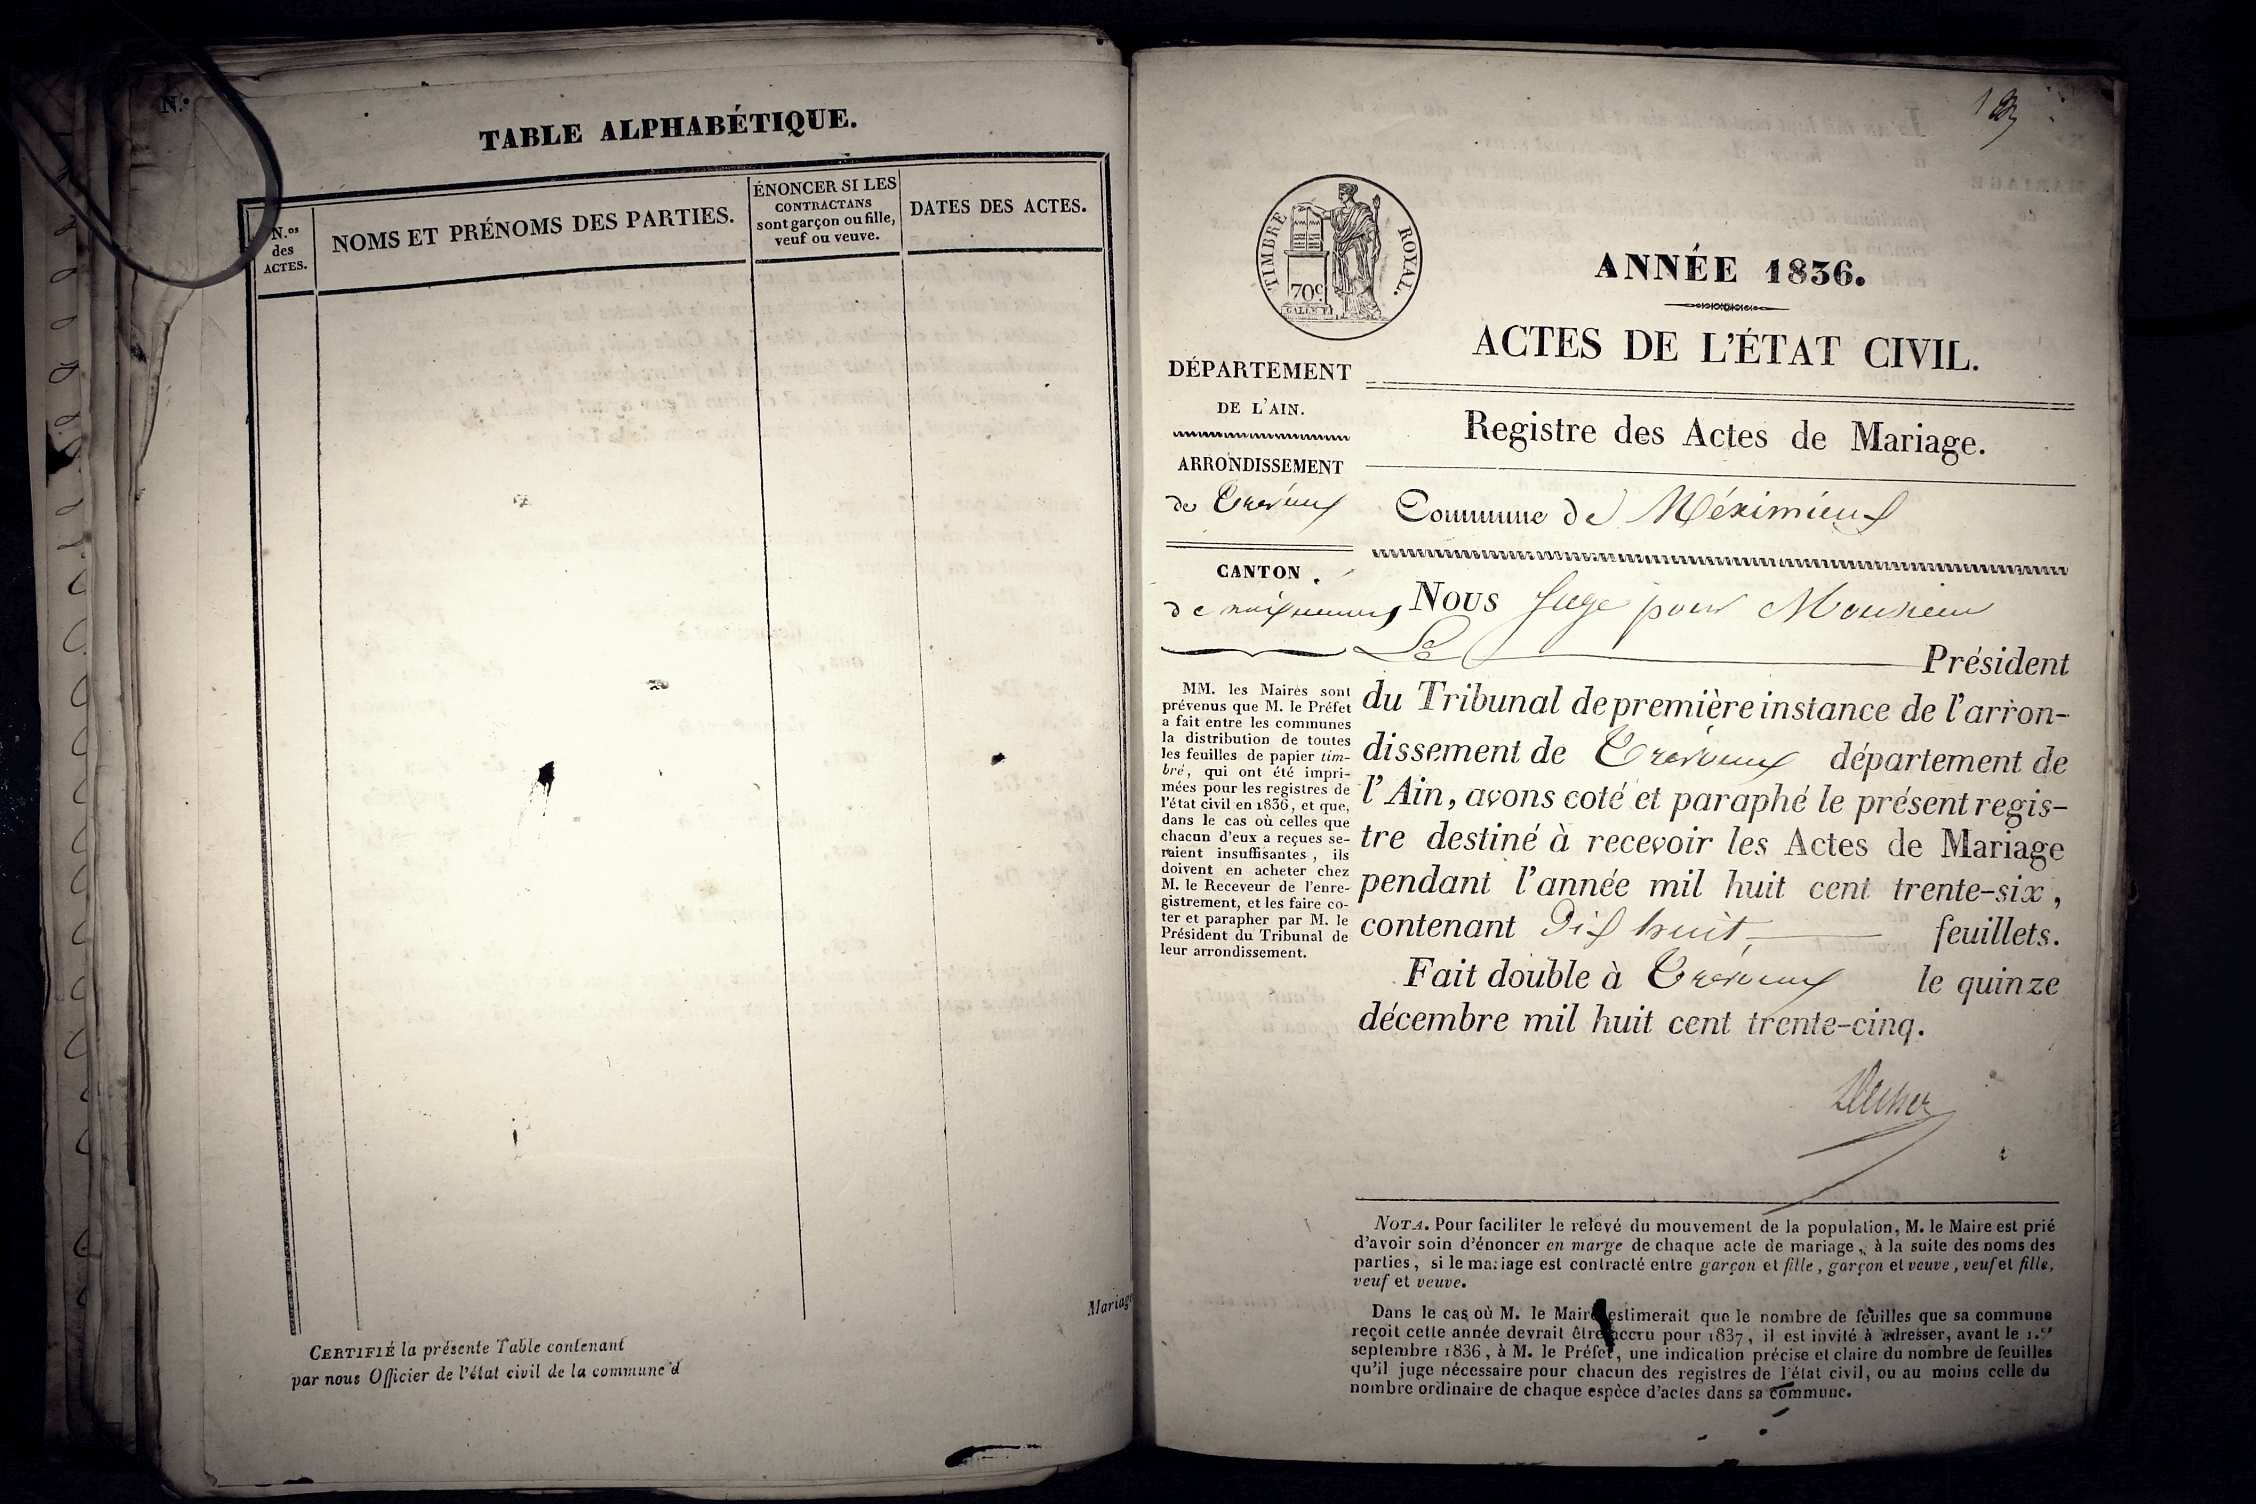 N.º
TABLE ALPHABÉTIQUE.
N.os
des
ACTES.
NOMS ET PRÉNOMS DES PARTIES.
ÉNONCER SI LES
CONTRACTANS
sont garçon ou fille,
veuf ou veuve.
DATES DES ACTES.
Mariage
CERTIFIÉ la présente Table contenant
par nous Officier de l'état civil de la commune d
TIMBRE ROYAL.
70c
ANNÉE 1836.
ACTES DE L'ÉTAT CIVIL.
Registre des Actes de Mariage.
DÉPARTEMENT
DE L'AIN.
ARRONDISSEMENT
de Trévoux
CANTON
de meximieux
Commune de Méximieux
MM. les Maires sont
prévenus que M. le Préfet
a fait entre les communes
la distribution de toutes
les feuilles de papier tim-
bré, qui ont été impri-
mées pour les registres de
l'état civil en 1836, et que,
dans le cas où celles que
chacun d'eux a reçues se-
raient insuffisantes, ils
doivent en acheter chez
M. le Receveur de l'enre-
gistrement, et les faire co-
ter et parapher par M. le
Président du Tribunal de
leur arrondissement.
Nous Juge pour Monsieur
Le Président
du Tribunal de première instance de l'arron-
dissement de Trévoux département de
l'Ain, avons coté et paraphé le présent regis-
tre destiné à recevoir les Actes de Mariage
pendant l'année mil huit cent trente-six,
contenant Dix huit, feuillets.
Fait double à Trévoux le quinze
décembre mil huit cent trente-cinq.
NOTA. Pour faciliter le relevé du mouvement de la population, M. le Maire est prié
d'avoir soin d'énoncer en marge de chaque acte de mariage, à la suite des noms des
parties, si le mariage est contracté entre garçon et fille, garçon et veuve, veuf et fille,
veuf et veuve.
Dans le cas où M. le Maire estimerait que le nombre de feuilles que sa commune
reçoit cette année devrait être accru pour 1837, il est invité à adresser, avant le 1.er
septembre 1836, à M. le Préfet, une indication précise et claire du nombre de feuilles
qu'il juge nécessaire pour chacun des registres de l'état civil, ou au moins celle du
nombre ordinaire de chaque espèce d'actes dans sa commune.